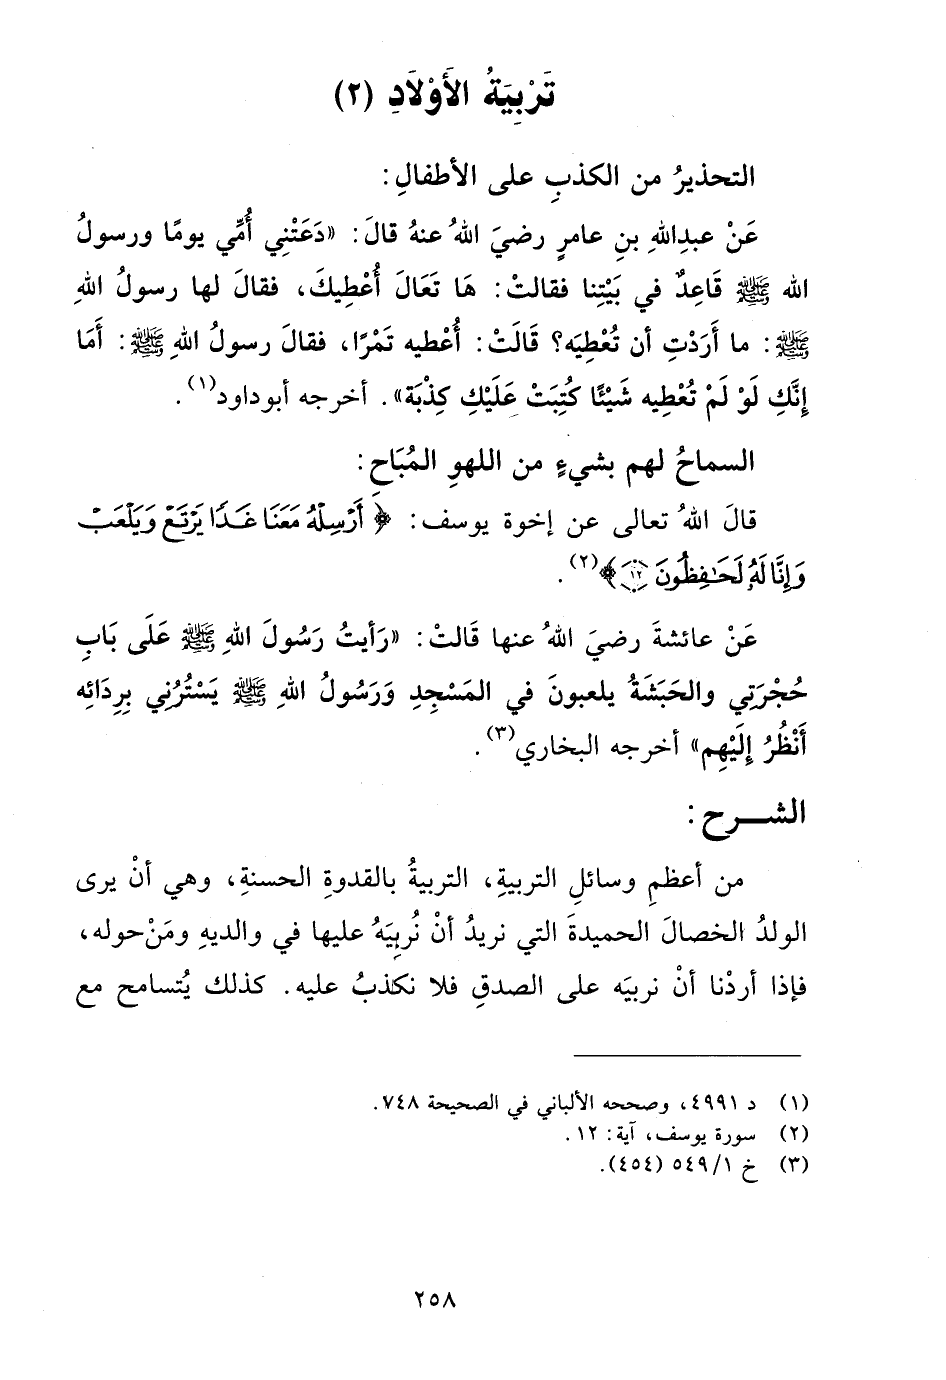 تَرْبِيَةُ الأَوْلَادِ (٢)
التحذيرُ من الكذبِ على الأطفالِ:
عَنْ عبدِاللهِ بنِ عامرٍ رضيَ اللهُ عنهُ قالَ: «دَعَتْنِي أُمِّي يومًا ورسولُ
الله ﷺ قَاعِدٌ في بَيْتِنا فقالتْ: هَا تَعَالَ أُعْطِيكَ، فقالَ لها رسولُ اللهِ
ﷺ: ما أَرَدْتِ أن تُعْطِيَه؟ قَالَتْ: أُعْطيه تَمْرًا، فقالَ رسولُ اللهِ ﷺ: أَمَا
إِنَّكِ لَوْ لَمْ تُعْطِيه شَيْئًا كُتِبَتْ عَلَيْكِ كِذْبَة». أخرجه أبوداود(١).
السماحُ لهم بشيءٍ من اللهوِ المُبَاحِ:
قالَ اللهُ تعالى عن إخوة يوسف: ﴿أَرْسِلْهُ مَعَنَا غَدًا يَرْتَعْ وَيَلْعَبْ
وَإِنَّا لَهُ لَحَافِظُونَ ١٢﴾(٢).
عَنْ عائشةَ رضيَ اللهُ عنها قَالتْ: «رَأيتُ رَسُولَ اللهِ ﷺ عَلَى بَابِ
حُجْرَتِي والحَبَشَةُ يلعبونَ في المَسْجِدِ وَرَسُولُ اللهِ ﷺ يَسْتُرُنِي بِرِدَائِه
أَنْظُرُ إِلَيْهِم» أخرجه البخاري(٣).
الشـــرح:
من أعظمِ وسائلِ التربيةِ، التربيةُ بالقدوةِ الحسنةِ، وهي أنْ يرى
الولدُ الخصالَ الحميدةَ التي نريدُ أنْ نُربِيَهُ عليها في والديهِ ومَنْ حوله،
فإذا أردْنا أنْ نربيَه على الصدقِ فلا نكذبُ عليه. كذلك يُتسامح مع
(١) د ٤٩٩١، وصححه الألباني في الصحيحة ٧٤٨.
(٢) سورة يوسف، آية: ١٢.
(٣) خ ٥٤٩/١ (٤٥٤).
٢٥٨